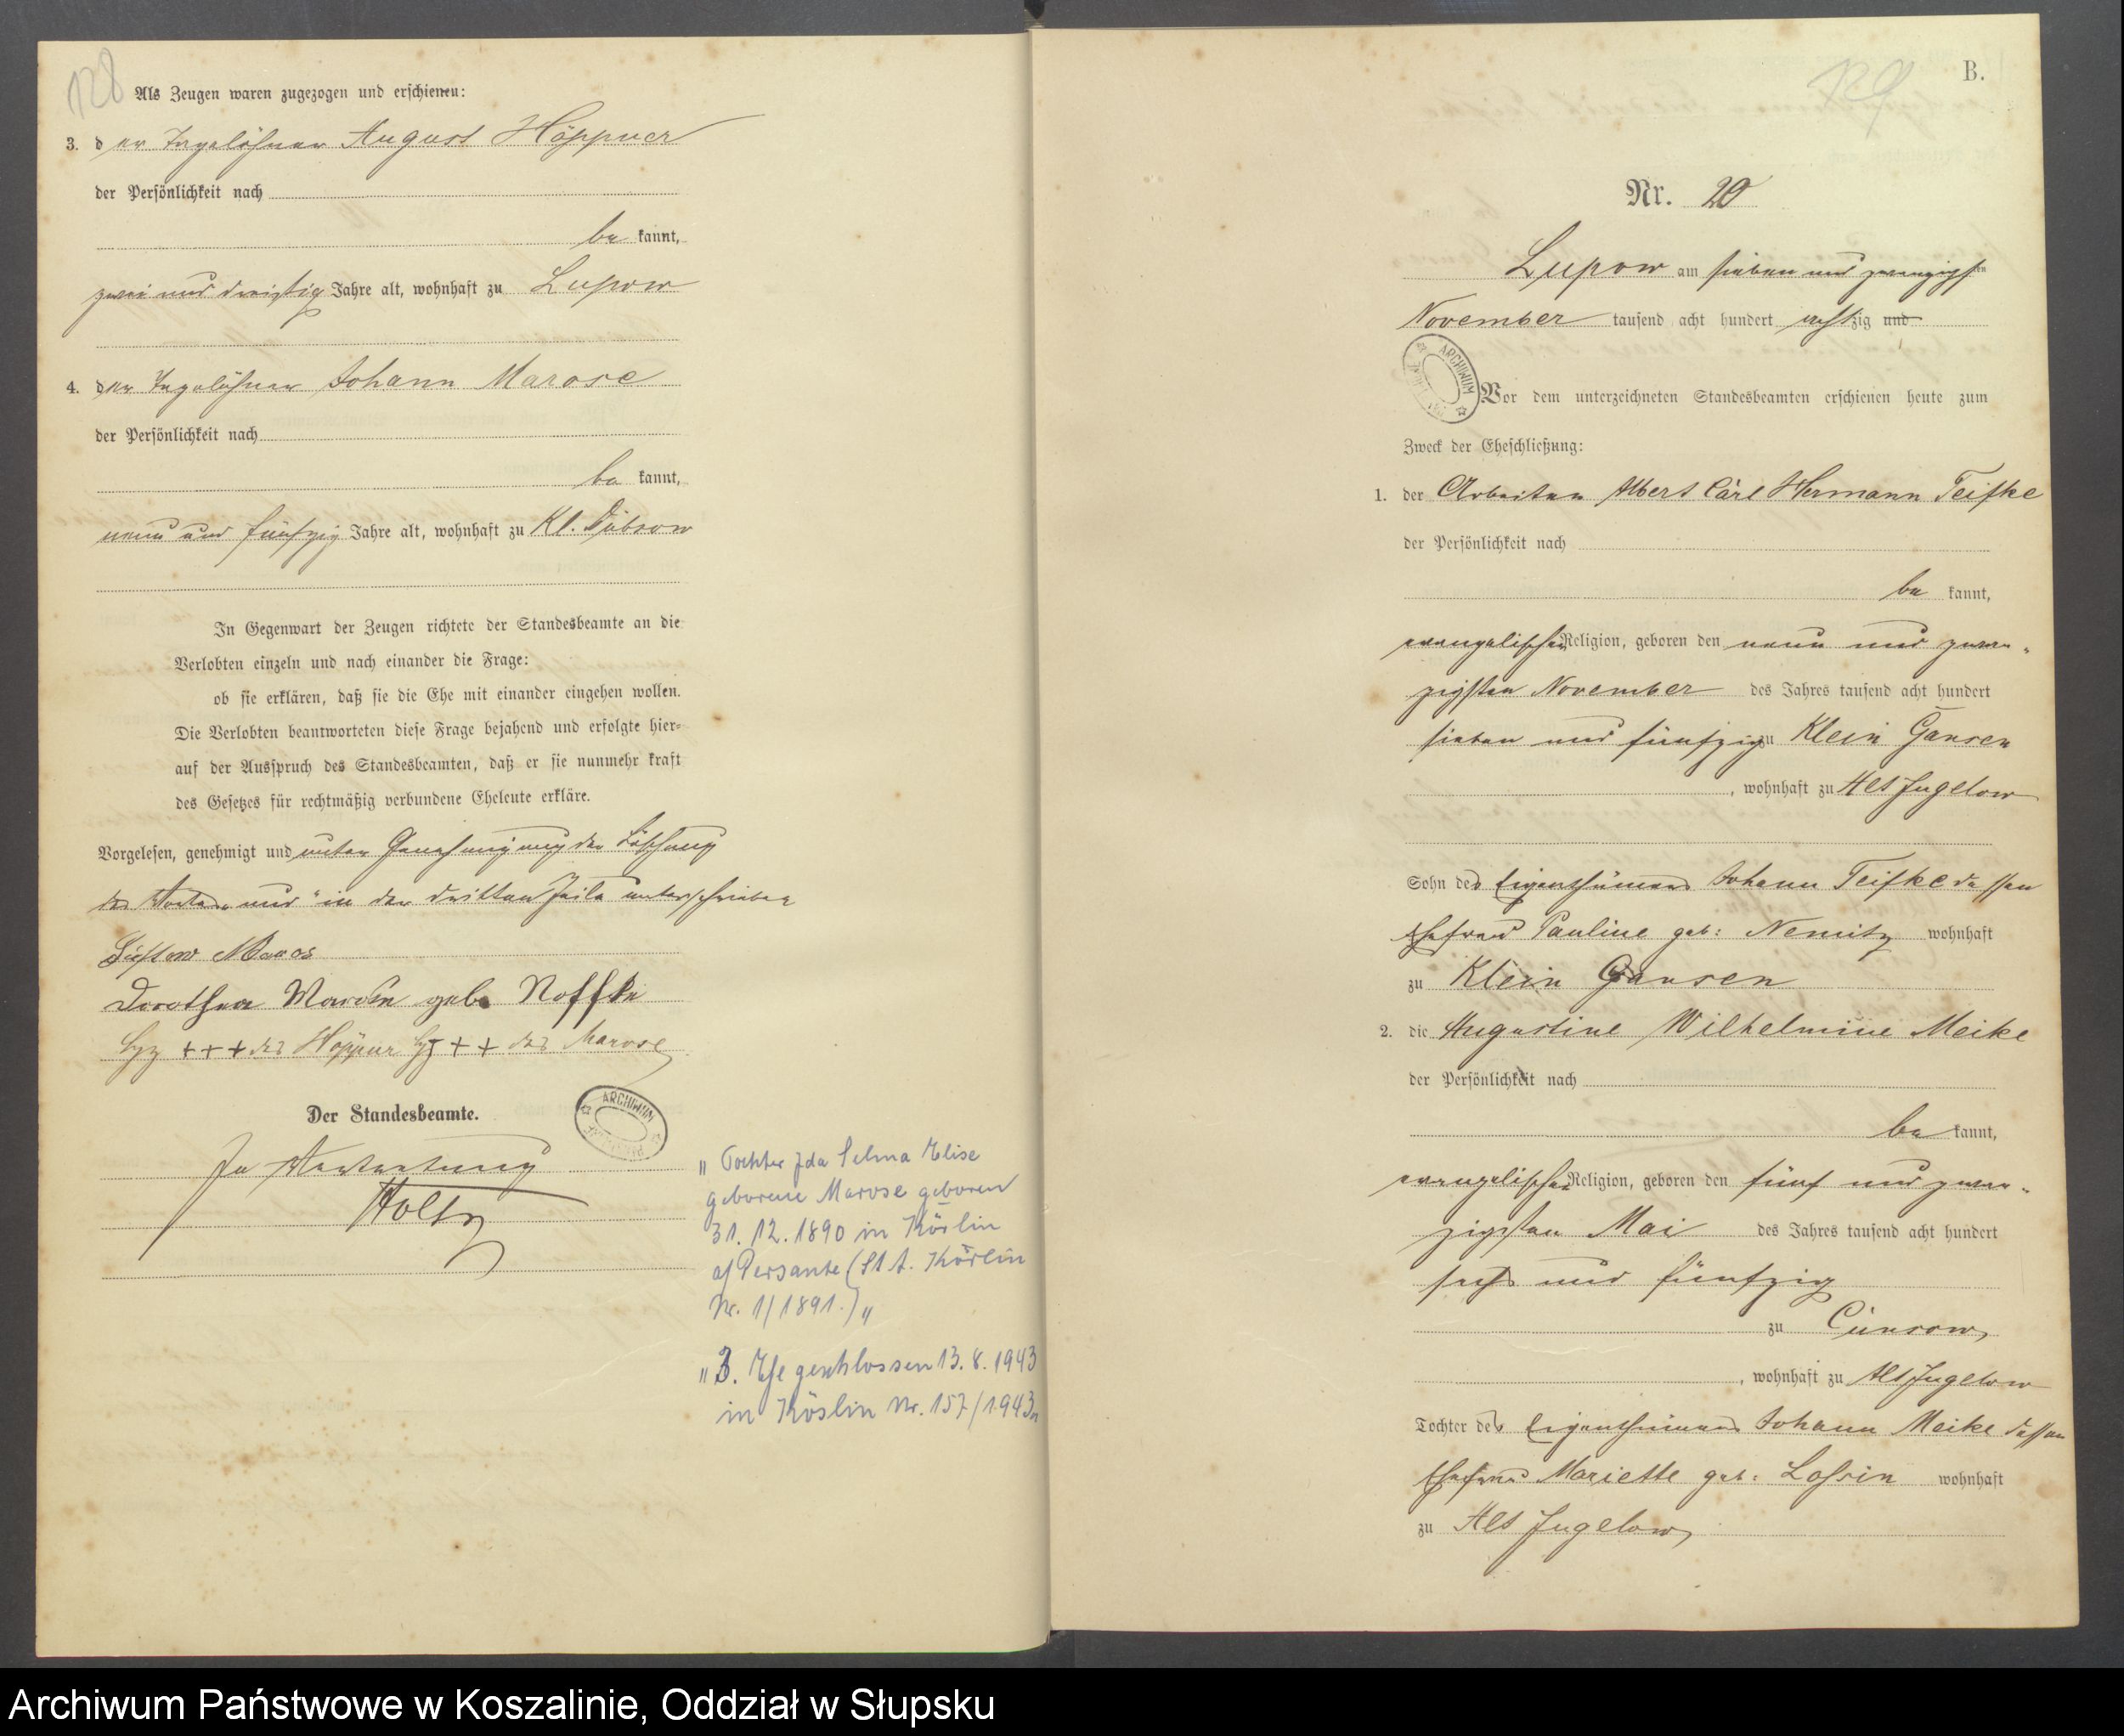 128
Als Zeugen waren zugezogen und erschienen:
3. der Tagelöhner August Höppner
der Persönlichkeit nach
be kannt,
zwei und dreißig Jahre alt, wohnhaft zu Lupow
4. der Tagelöhner Johann Marose
der Persönlichkeit nach
be kannt,
neun und fünfzig Jahre alt, wohnhaft zu Kl. Dübsow
In Gegenwart der Zeugen richtete der Standesbeamte an die
Verlobten einzeln und nach einander die Frage:
ob sie erklären, daß sie die Ehe mit einander eingehen wollen.
Die Verlobten beantworteten diese Frage bejahend und erfolgte hier-
auf der Ausspruch des Standesbeamten, daß er sie nunmehr kraft
des Gesetzes für rechtmäßig verbundene Eheleute erkläre.
Vorgelesen, genehmigt und unter Genehmigung der Löschung
des Wortes "und" in der dritten Zeile unterschrieben
Dorothea Marose geb. Noffke
Hz +++ des Höppner Hz +++ des Marose
Der Standesbeamte.
In Vertretung
Holtz
ARCHIWUM
" Tochter Ida Selma Elise
geborene Marose geboren
31. 12. 1890 in Körlin
a/ Persante (St. A. Körlin
Nr. 1/1891.) "
" 3. Ehe geschlossen 13. 8. 1943
in Köslin Nr. 157/1943 "
129
B.
Nr. 20
Lupow am sieben und zwanzigsten
November tausend acht hundert achtzig und
ARCHIWUM
Vor dem unterzeichneten Standesbeamten erschienen heute zum
Zweck der Eheschließung:
1. der Arbeiter Albert Carl Hermann Teifke
der Persönlichkeit nach
be kannt,
evangelischer Religion, geboren den neun und zwan-
zigsten November des Jahres tausend acht hundert
sieben und fünfzig zu Klein Gansen
, wohnhaft zu Alt Jugelow
Sohn des Eigenthümers Johann Teifke dessen
Ehefrau Pauline geb: Nemitz wohnhaft
zu Klein Gansen
2. die Augustine Wilhelmine Meike
der Persönlichkeit nach
be kannt,
evangelischer Religion, geboren den fünf und zwan-
zigsten Mai des Jahres tausend acht hundert
sechs und fünfzig
zu Cunsow,
, wohnhaft zu Alt Jugelow
Tochter des Eigenthümers Johann Meike dessen
Ehefrau Mariette geb: Lossin wohnhaft
zu Alt Jugelow,
Archiwum Państwowe w Koszalinie, Oddział w Słupsku